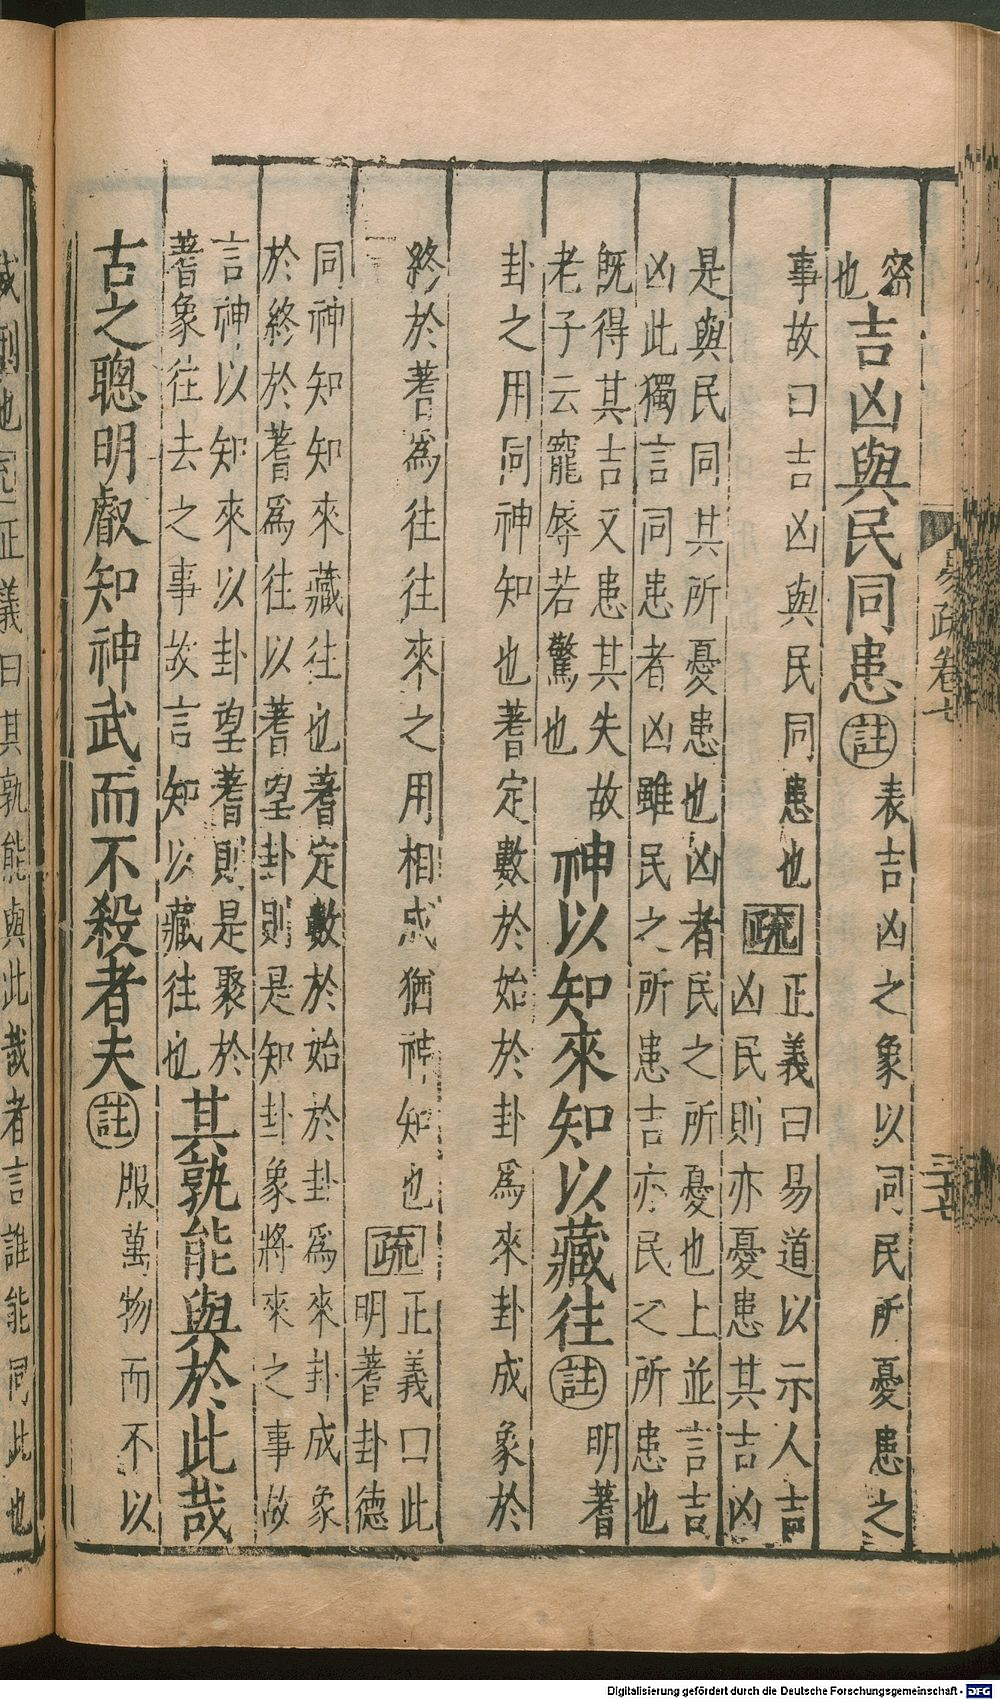 易疏卷七
三十七
密
也吉凶與民同患註表吉凶之象以同民所憂患之
事故曰吉凶與民同患也疏正義曰易道以示人吉
凶民則亦憂患其吉凶
是與民同其所憂患也凶者民之所憂也上並言吉
凶此獨言同患者凶雖民之所患吉亦民之所患也
旣得其吉又患其失故
老子云寵辱若驚也神以知來知以藏往註明蓍
卦之用同神知也蓍定數於始於卦爲來卦成象於
終於蓍爲往往來之用相成猶神知也疏正義曰此
明蓍卦德
同神知知來藏往也蓍定數於始於卦爲來卦成象
於終於蓍爲往以蓍望卦則是知卦象將來之事故
言神以知來以卦望蓍則是聚於
蓍象往去之事故言知以藏往也其孰能與於此哉
古之聰明叡知神武而不殺者夫註服萬物而不以
威刑也疏正義曰其孰能與此哉者言誰能同此也
Digitalisierung gefördert durch die Deutsche Forschungsgemeinschaft - DFG